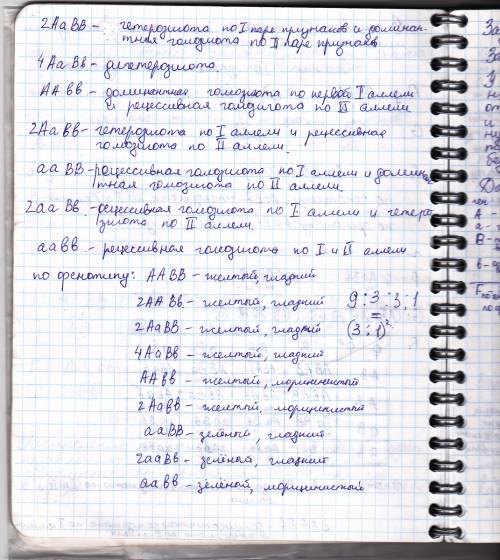 2AaBB - гетерозигота по I паре признаков и доминан-
тная гомозигота по II паре признаков
4AaBb - дигетерозигота.
AAbb - доминантная гомозигота по первой I аллели
и рецессивная гомозигота по II аллели
2Aabb - гетерозигота по I аллели и рецессивная
гомозигота по II аллели.
aaBB - рецессивная гомозигота по I аллели и домин
тная гомозигота по II аллели.
2aaBb - рецессивная гомозигота по I аллели и гетеро
зигота по II аллели.
aabb - рецессивная гомозигота по I и II аллели
по фенотипу: AABB - желтый, гладкий
2AABb - желтый, гладкий 9:3:3:1
2AaBB - желтый, гладкий = (3:1)²
4AaBb - желтый, гладкий
AAbb - желтый, морщинистый
2Aabb - желтый, морщинистый
aaBB - зелёный, гладкий
2aaBb - зелёный, гладкий
aabb - зелёный, морщинистый
За
За
Да
ген
A -
a -
B -
b -
F